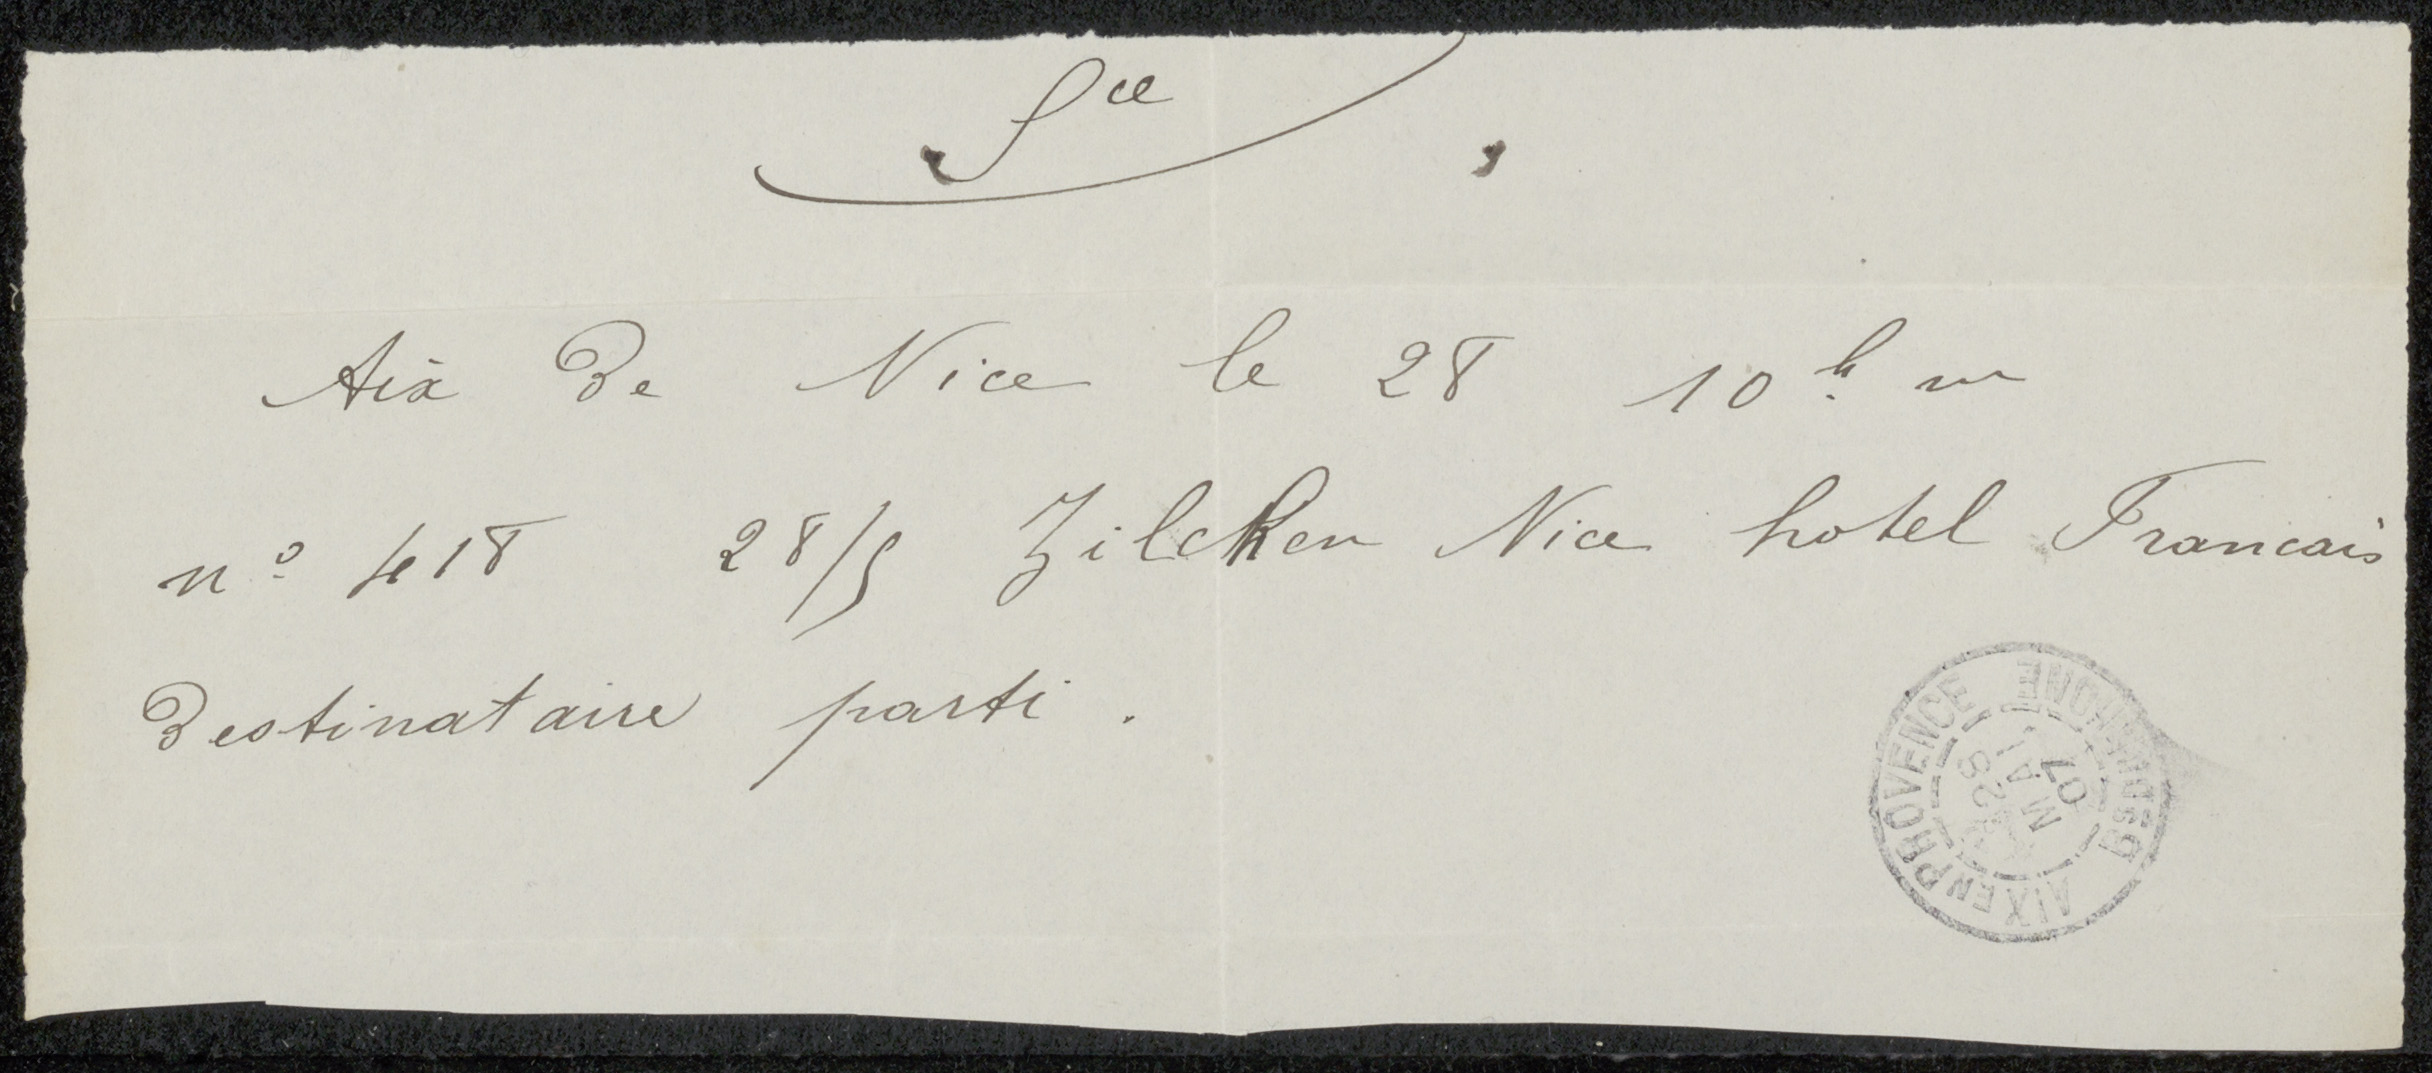 Sce
Aix de Nice le 28 10h m
no 418 28/5 Zilcken Nice hotel Francais
Destinataire parti.
AIX EN PROVENCE
28
MAI
07